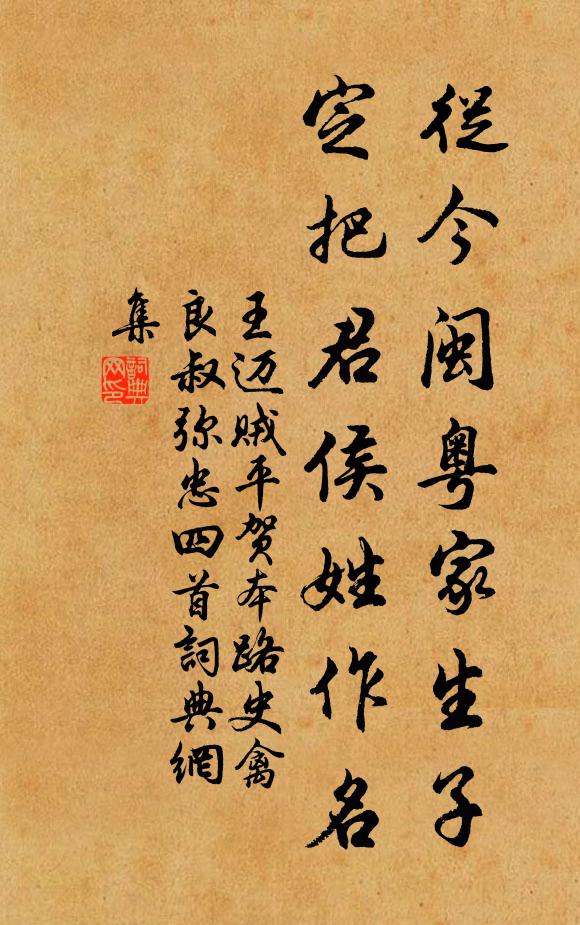 從今閩粵家生子
定把君侯姓作名
王迈贼平贺本路史禽
良叔弥忠四首詞典網
集
詞典
网印